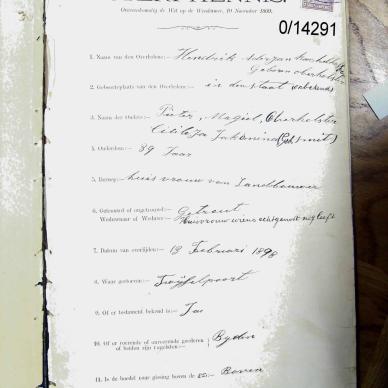 Overeenkomstig de Wet op de Weeskamer, 10 November 1899.
0/14291
1. Naam van den Overledene: Hendrik
Geboren Oberholster
2. Geboorteplaats van den Overledene: in den staat onbekend
3. Namen der Ouders: Pieter, Magiel, Oberholster
Jakomina (Geb Smit)
4. Ouderdom: 39 Jaar
5. Beroep: huis vrouw van Landbouwer
6. Getrouwd of ongetrouwd: Getrout
Weduwnaar of Weduwe: Huisvrouw wiens echtgenoot nog leeft
7. Datum van overlijden: 13 Februari 1898
8. Waar gestorven: Twyfelpoort
9. Of er testament bekend is: Jaa
10. Of er roerende of onroerende goederen
of beiden zijn nagelaten: Byden
11. Is de boedel naar gissing boven de £ Boven